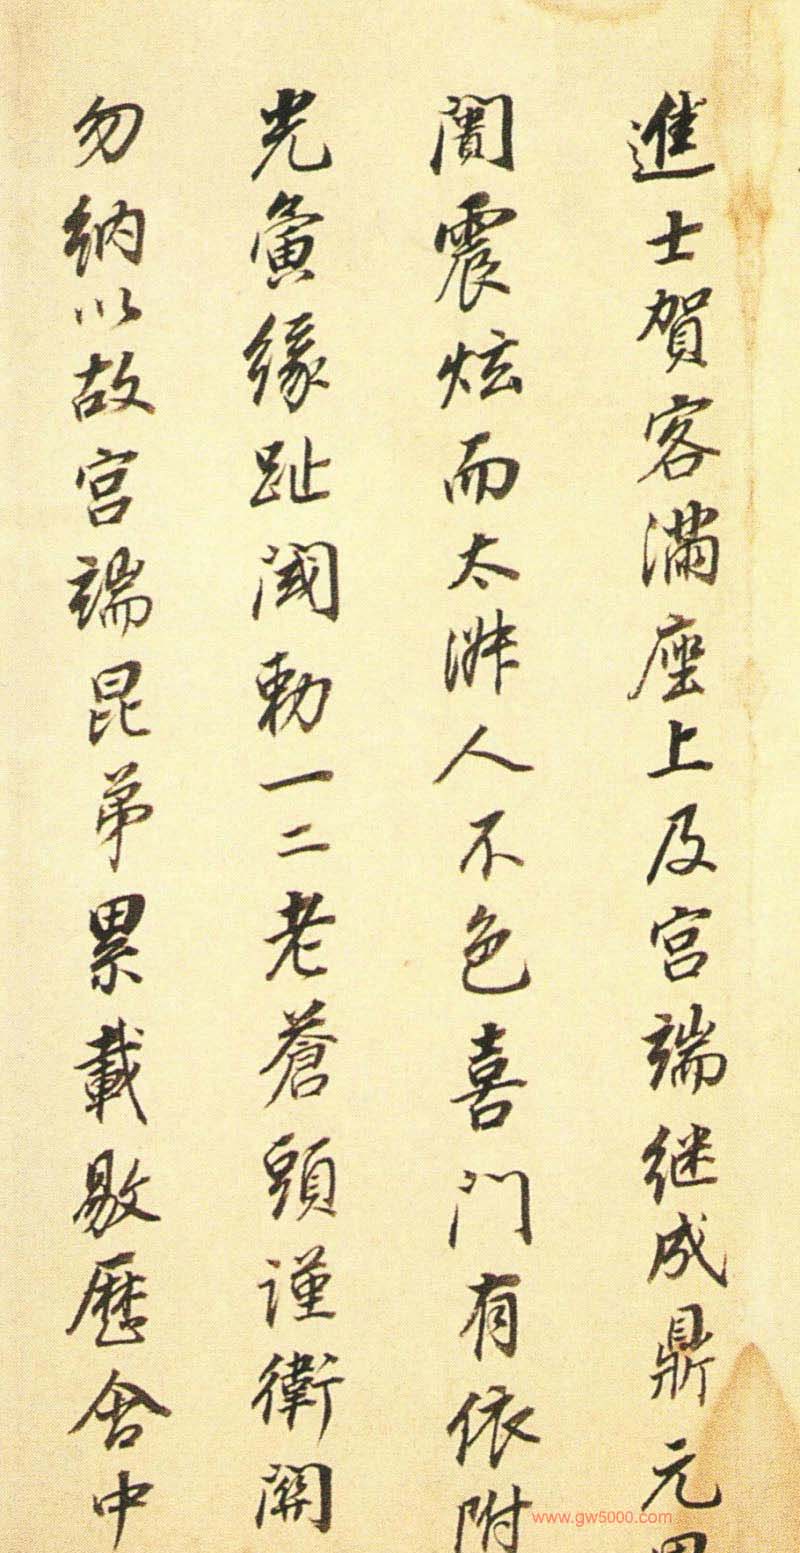 進士賀客滿座上及宮端继成鼎元
闠震炫而太淑人不色喜門有依附
光夤緣趾閾勅一二老蒼頭謹衛關
勿納以故宮端昆弟累載敭歷舍中
www.gw5000.com